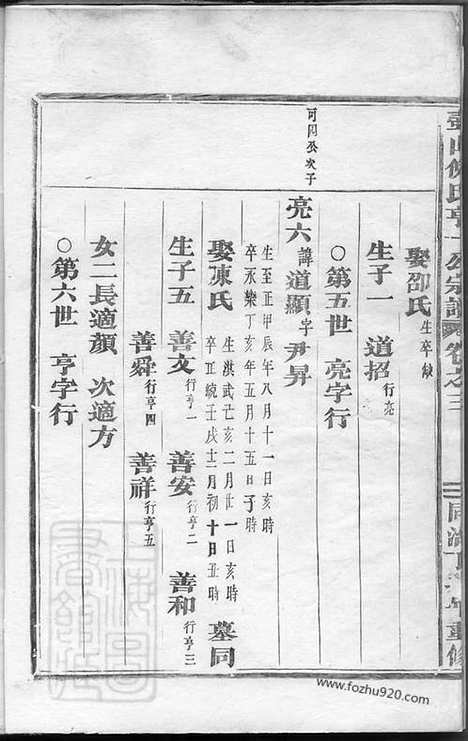 娶邵氏 生卒缺
生子一 道招 行亮
○第五世 亮字行
可閑公次子
亮六 諱道顯 字尹昇
生至正甲辰年八月十一日亥時
卒永樂丁亥年五月十五日子時
娶凍氏 生洪武己亥二月廿一日亥時 墓同
卒正統壬戌十二月初十日丑時
生子五 善友 行亨一 善安 行亨二 善和 行亨三
善舜 行亨四 善祥 行亨五
女二長適顏 次適方
○第六世 亨字行
www.fozhu920.com